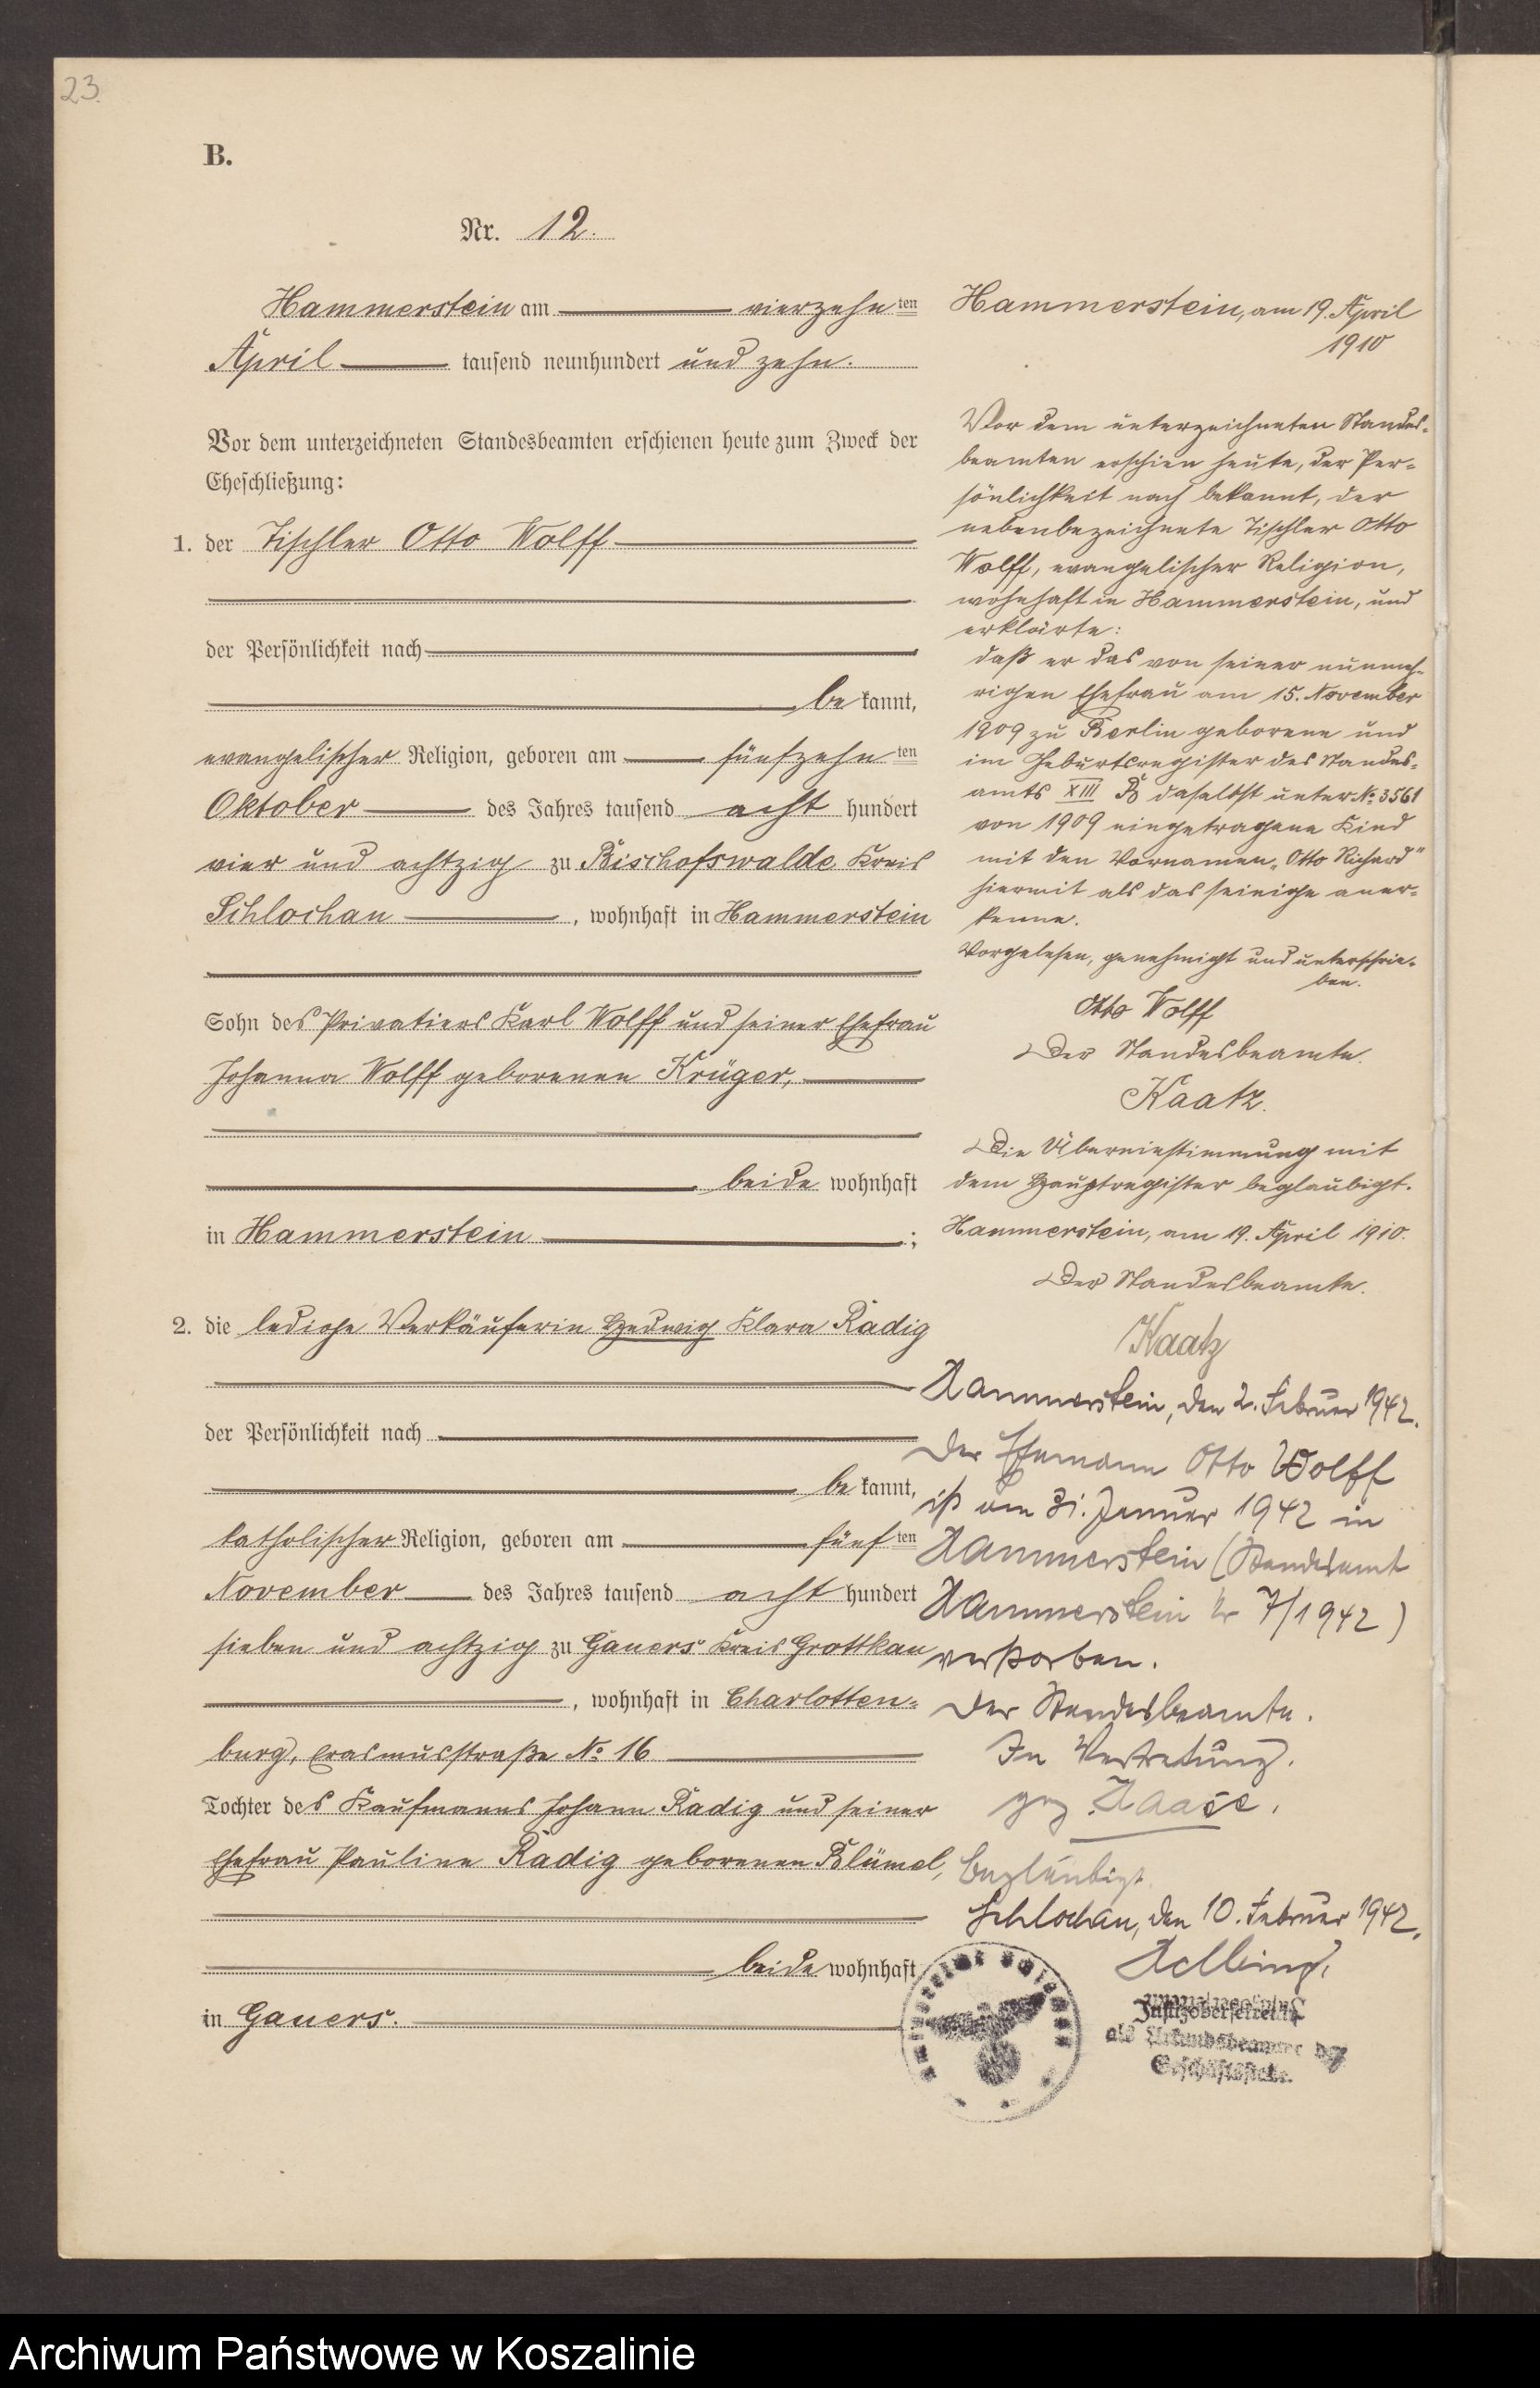 23.
B.
Nr. 12.
Hammerstein am vierzehn ten
April tausend neunhundert und zehn.
Vor dem unterzeichneten Standesbeamten erschienen heute zum Zweck der
Eheschließung:
1. der Tischler Otto Wolff
der Persönlichkeit nach
be kannt,
evangelischer Religion, geboren am fünfzehn ten
Oktober des Jahres tausend acht hundert
vier und achtzig zu Bischofswalde Kreis
Schlochau , wohnhaft in Hammerstein
Sohn des Privatiers Karl Wolff und seiner Ehefrau
Johanna Wolff geborenen Krüger,
beide wohnhaft
in Hammerstein ;
2. die ledige Verkäuferin Hedwig Klara Radig
der Persönlichkeit nach
be kannt,
katholischer Religion, geboren am fünf ten
November des Jahres tausend acht hundert
sieben und achtzig zu Gauers Kreis Grottkau
, wohnhaft in Charlotten-
burg, Erasmusstraße No 16
Tochter des Kaufmanns Johann Radig und seiner
Ehefrau Pauline Radig geborenen Blümel,
beide wohnhaft
in Gauers.
Hammerstein, am 19. April
1910
Vor dem unterzeichneten Standes-
beamten erschien heute, der Per-
sönlichkeit nach bekannt, der
nebenbezeichnete Tischler Otto
Wolff, evangelischer Religion,
wohnhaft in Hammerstein, und
erklärte:
daß er das von seiner nunmeh-
rigen Ehefrau am 15. November
1909 zu Berlin geborene und
im Geburtsregister des Standes-
amts XIII B daselbst unter No 3561
von 1909 eingetragene Kind
mit den Vornamen „Otto Richard"
hiermit als das seinige aner-
kenne.
Vorgelesen, genehmigt und unterschrie-
ben.
Otto Wolff
Der Standesbeamte.
Kaatz.
Die Übereinstimmung mit
dem Hauptregister beglaubigt.
Hammerstein, am 19. April 1910.
Der Standesbeamte.
Kaatz
Hammerstein, den 2. Februar 1942.
Der Ehemann Otto Wolff
ist am 31. Januar 1942 in
Hammerstein (Standesamt
Hammerstein Nr 7/1942)
verstorben.
Der Standesbeamte.
In Vertretung.
gez. Haase.
Beglaubigt.
Schlochau, den 10. Februar 1942.
Justizobersekretär
als Urkundsbeamter der
Geschäftsstelle.
Archiwum Państwowe w Koszalinie